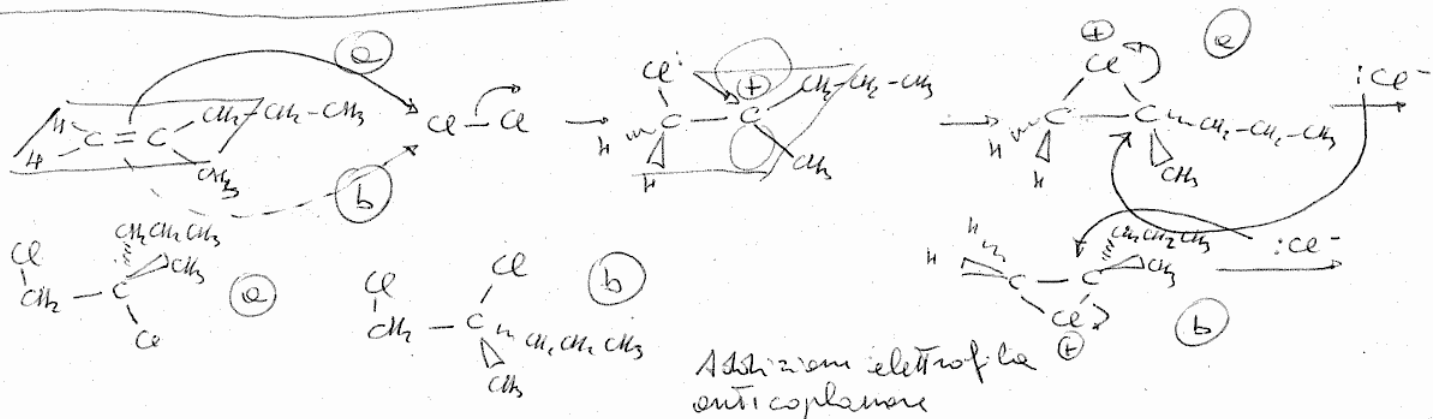 a
H
C = C
CH2-CH2-CH3
H
CH3
Cl — Cl
b
Cl:
+
H
C — C
CH2-CH2-CH3
H
CH3
+
Cl
a
:Cl⁻
H
C — C
CH2-CH2-CH3
H
CH3
Cl
CH2CH2CH3
CH3
CH2 — C
Cl
a
Cl
Cl
CH2 — C
CH2CH2CH3
CH3
b
H
H
C — C
CH2CH2CH3
CH3
Cl
+
:Cl⁻
b
Addizione elettrofila
anticoplanare